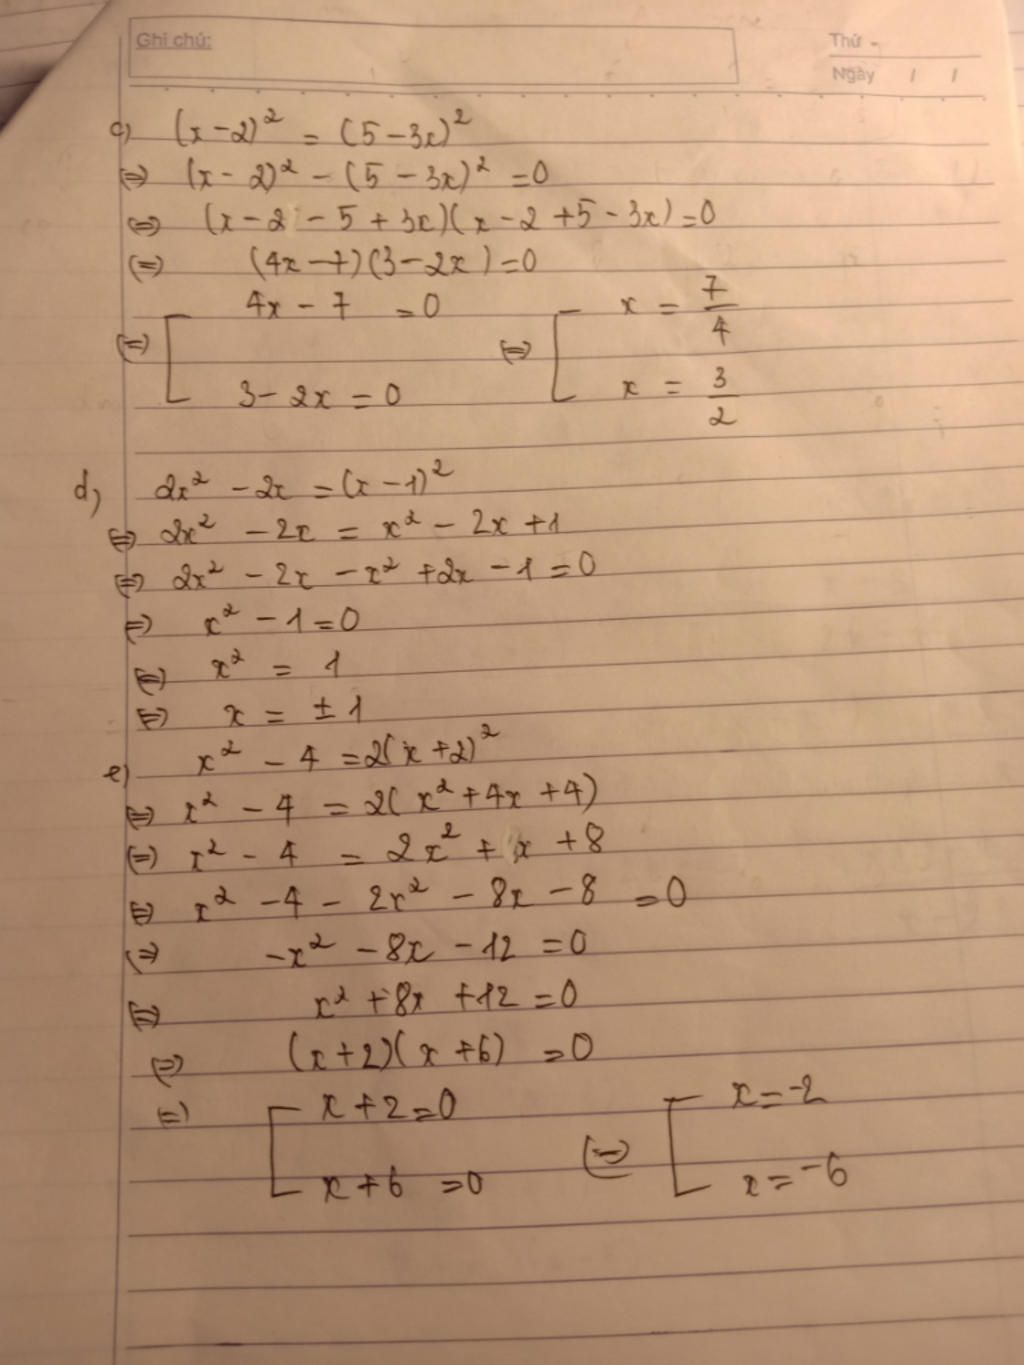 Ghi chú:
Thứ
Ngày / /
c) (x-2)² = (5-3x)²
⇔ (x-2)² - (5-3x)² = 0
⇔ (x-2-5+3x)(x-2+5-3x)=0
⇔ (4x-7)(3-2x)=0
⇔ [ 4x-7 = 0 ⇔ [ x = 7/4
3-2x=0 x = 3/2
d) 2x² - 2x = (x-1)²
⇔ 2x² - 2x = x² - 2x + 1
⇔ 2x² - 2x - x² + 2x - 1 = 0
⇔ x² - 1 = 0
⇔ x² = 1
⇔ x = ± 1
e) x² - 4 = 2(x+2)²
⇔ x² - 4 = 2(x² + 4x + 4)
⇔ x² - 4 = 2x² + x + 8
⇔ x² - 4 - 2x² - 8x - 8 = 0
⇔ -x² - 8x - 12 = 0
⇔ x² + 8x + 12 = 0
⇔ (x+2)(x+6) = 0
⇔ [ x+2=0 ⇔ [ x=-2
x+6 =0 x=-6